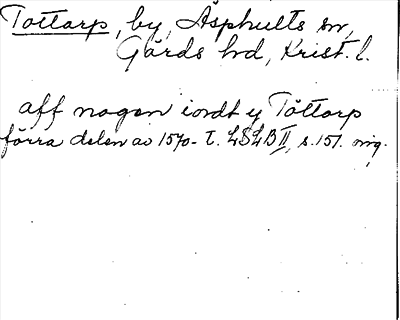 Tottarp, by, Äsphults sn,
Gärds hd, Krist. l.
aff nogen iordt y Tóttorp
förra delen av 1570-t. LSLB II, s. 151. mg.